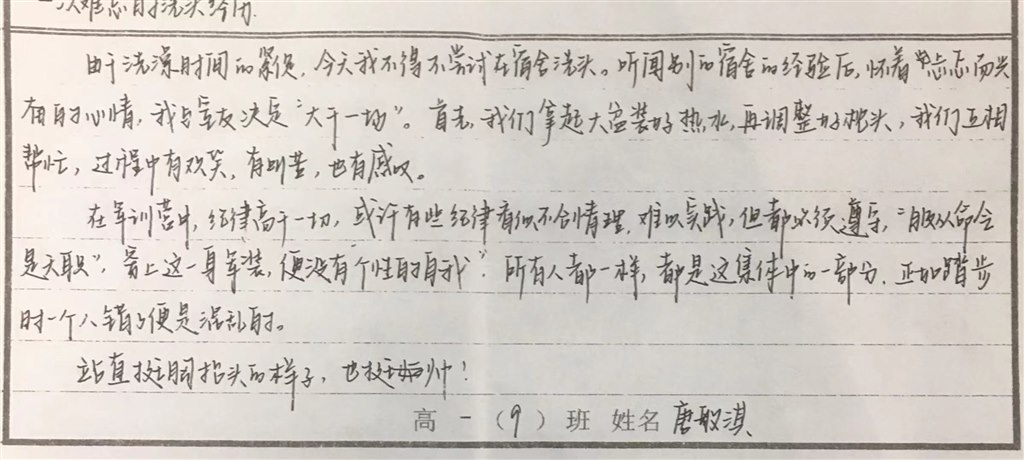 一次难忘的洗头经历.
由于洗澡时间的紧促，今天我不得不尝试在宿舍洗头。听闻别的宿舍的经验后，怀着忐忑而兴
奋的心情，我与室友决定“大干一场”。首先，我们拿起大盆装好热水，再调整好枕头，我们互相
帮忙，过程中有欢笑，有叫苦，也有感叹。
在军训营中，纪律高于一切，或许有些纪律看似不合情理，难以实践，但都必须遵守，“服从命令
是天职”，穿上这一身军装，便没有个性的自我”。所有人都一样，都是这集体中的一部分，正如踏步
时一个人错了便是混乱的。
站直挺胸抬头的样子，也挺帅！
高一（9）班 姓名 唐淇